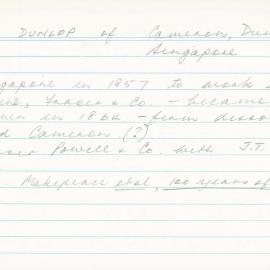 DUNLOP of Cameron, Dun
Singapore
gapore in 1857 to work
Fraser & Co. - became
in 1864 - firm disso
d Cameron (?)
Powell & Co. with J.T.
Makepeace et al, 100 years of